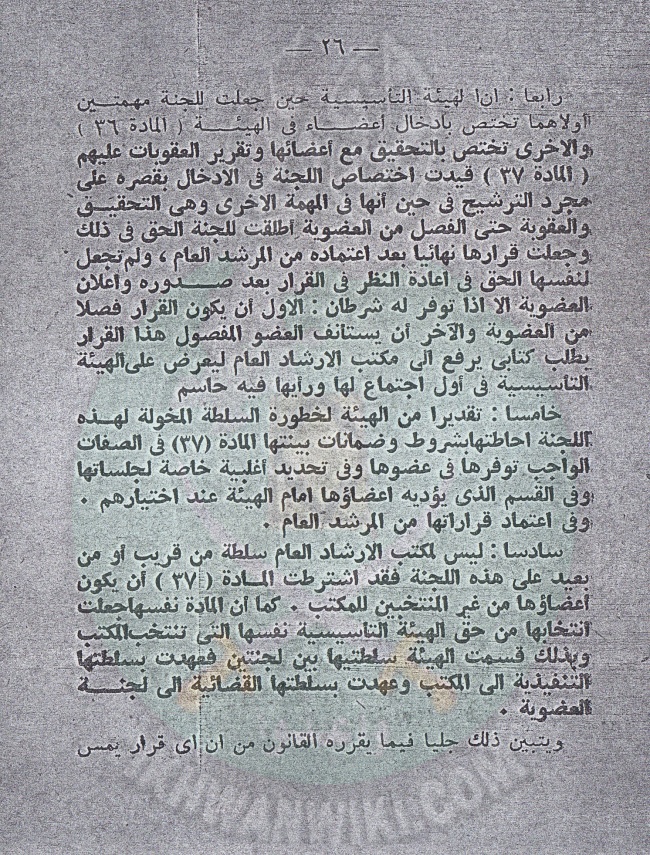 — ٢٦ —
رابعا : ان الهيئة التأسيسية حين جعلت للجنة مهمتين
أولاهما تختص بادخال أعضاء فى الهيئة ( المادة ٣٦ )
والاخرى تختص بالتحقيق مع أعضائها وتقرير العقوبات عليهم
( المادة ٣٧ ) قيدت اختصاص اللجنة فى الادخال بقصره على
مجرد الترشيح فى حين أنها فى المهمة الاخرى وهى التحقيق
والعقوبة حتى الفصل من العضوية أطلقت للجنة الحق فى ذلك
وجعلت قرارها نهائيا بعد اعتماده من المرشد العام ، ولم تجعل
لنفسها الحق فى اعادة النظر فى القرار بعد صدوره واعلان
العضوية الا اذا توفر له شرطان : الاول أن يكون القرار فصلا
من العضوية والآخر أن يستأنف العضو المفصول هذا القرار
بطلب كتابى يرفع الى مكتب الارشاد العام ليعرض على الهيئة
التأسيسية فى أول اجتماع لها ورأيها فيه حاسم
خامسا : تقديرا من الهيئة لخطورة السلطة المخولة لهذه
اللجنة احاطتها بشروط وضمانات بينتها المادة (٣٧) فى الصفات
الواجب توفرها فى عضوها وفى تحديد أغلبية خاصة لجلساتها
وفى القسم الذى يؤديه اعضاؤها امام الهيئة عند اختيارهم .
وفى اعتماد قراراتها من المرشد العام .
سادسا : ليس لمكتب الارشاد العام سلطة من قريب أو من
بعيد على هذه اللجنة فقد اشترطت المادة ( ٣٧ ) أن يكون
أعضاؤها من غير المنتخبين للمكتب . كما أن المادة نفسها جعلت
انتخابها من حق الهيئة التأسيسية نفسها التى تنتخب المكتب
وبذلك قسمت الهيئة سلطتيها بين لجنتين فعهدت بسلطتها
التنفيذية الى المكتب وعهدت بسلطتها القضائية الى لجنة
العضوية .
ويتبين ذلك جليا فيما يقرره القانون من ان اى قرار يمس
IKHWANWIKI.COM